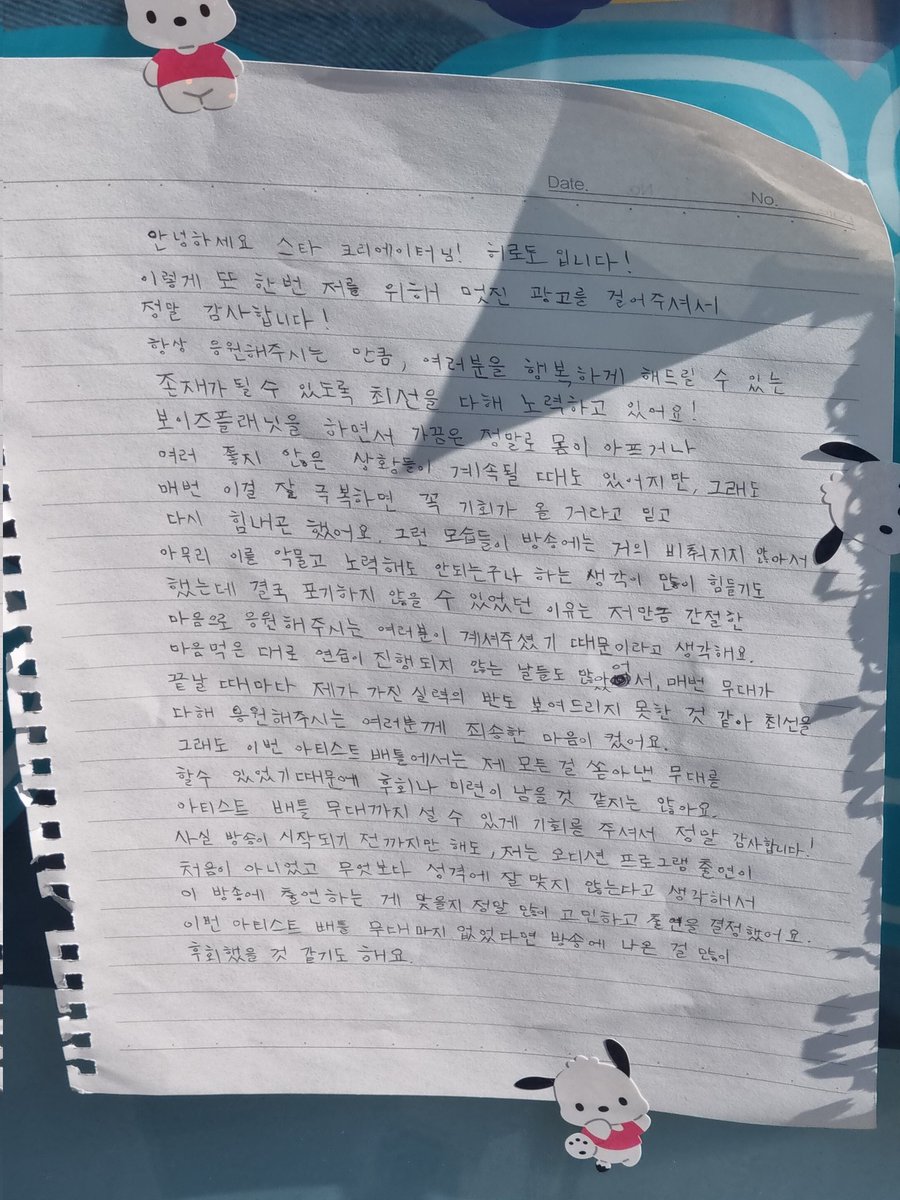 Date.
No.
안녕하세요 스타 크리에이터님! 히로토입니다!
이렇게 또 한번 저를 위해 멋진 광고를 걸어주셔서
정말 감사합니다!
항상 응원해주시는 만큼, 여러분을 행복하게 해드릴 수 있는
존재가 될 수 있도록 최선을 다해 노력하고 있어요!
보이즈플래닛을 하면서 가끔은 정말로 몸이 아프거나
여러 좋지 않은 상황들이 계속될 때도 있어지만, 그래도
매번 이걸 잘 극복하면 꼭 기회가 올 거라고 믿고
다시 힘내곤 했어요. 그런 모습들이 방송에는 거의 비춰지지 않아서
아무리 이를 악물고 노력해도 안되는구나 하는 생각이 많이 힘들기도
했는데 결국 포기하지 않을 수 있었던 이유는 저만큼 간절한
마음으로 응원해주시는 여러분이 계셔주셨기 때문이라고 생각해요.
마음먹은 대로 연습이 진행되지 않는 날들도 많았어서, 매번 무대가
끝날 때마다 제가 가진 실력의 반도 보여드리지 못한 것 같아 최선을
다해 응원해주시는 여러분께 죄송한 마음이 컸어요.
그래도 이번 아티스트 배틀에서는 제 모든 걸 쏟아낸 무대를
할수 있었기때문에 후회나 미련이 남을 것 같지는 않아요.
아티스트 배틀 무대까지 설 수 있게 기회를 주셔서 정말 감사합니다!
사실 방송이 시작되기 전까지만 해도, 저는 오디션 프로그램 출연이
처음이 아니었고 무엇보다 성격에 잘 맞지 않는다고 생각해서
이 방송에 출연하는 게 맞을지 정말 많이 고민하고 출연을 결정했어요.
이번 아티스트 배틀 무대마저 없었다면 방송에 나온 걸 많이
후회했을 것 같기도 해요.